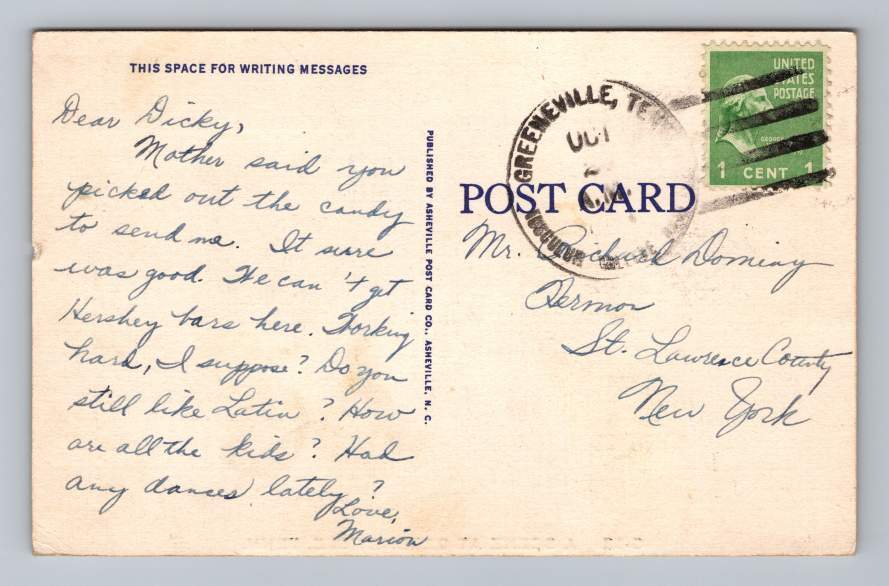 THIS SPACE FOR WRITING MESSAGES
Dear Dicky,
Mother said you
picked out the candy
to send me. It sure
was good. We can't get
Hershey bars here. Working
hard, I suppose? Do you
still like Latin? How
are all the kids? Had
any dances lately?
Love,
Marion
PUBLISHED BY ASHEVILLE POST CARD CO., ASHEVILLE, N. C.
POST CARD
GREENEVILLE, TENN
OCT
UNITED
STATES
POSTAGE
1 CENT 1
Mr. Richard Dominy
Hermon
St. Lawrence County
New York